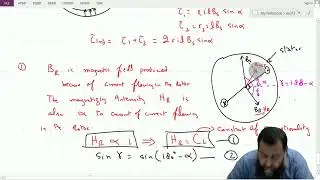 τ₁ = r i l B_s sin α
τ₂ = r₂ i l B_s sin α
τ_ind = τ₁ + τ₂ = 2 r i l B_s sin α
stator
γ = 180 - α
① B_R is magnetic field produced
because of current flowing in the Rotor
The magnetizing Intensity H_R is
also due to current of current flowing
in the Rotor
H_R ∝ i ⟹ H_R = C i
Constant of proportionality
①
sin γ = sin (180° - α) ②